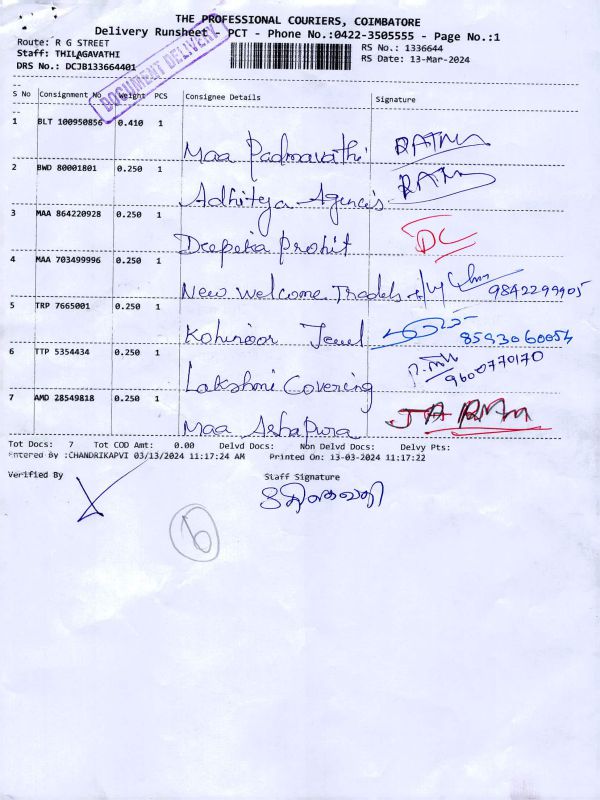 THE PROFESSIONAL COURIERS, COIMBATORE
Delivery Runsheet - PCT - Phone No.:0422-3505555 - Page No.:1
Route: R G STREET
RS No.: 1336644
Staff: THILAGAVATHI
RS Date: 13-Mar-2024
DRS No.: DCJB133664401
DOCUMENT DELIVERY
S No Consignment No Weight PCS Consignee Details Signature
1 BLT 100950856 0.410 1
Maa Padmavathi RATNA
2 BWD 80001801 0.250 1
Adhiteja Agencis RATN
3 MAA 864220928 0.250 1
Deepeka Prohit DC
4 MAA 703499996 0.250 1
New Welcome Tradels 9842299905
5 TRP 7665001 0.250 1
Kohinoor Jewel 8593060054
6 TTP 5354434 0.250 1
Lakshmi Covering 9600770170
7 AMD 28549818 0.250 1
Maa Ashapura
Tot Docs: 7 Tot COD Amt: 0.00 Delvd Docs: Non Delvd Docs: Delvy Pts:
Entered By :CHANDRIKAPVI 03/13/2024 11:17:24 AM Printed On: 13-03-2024 11:17:22
Verified By Staff Signature
6